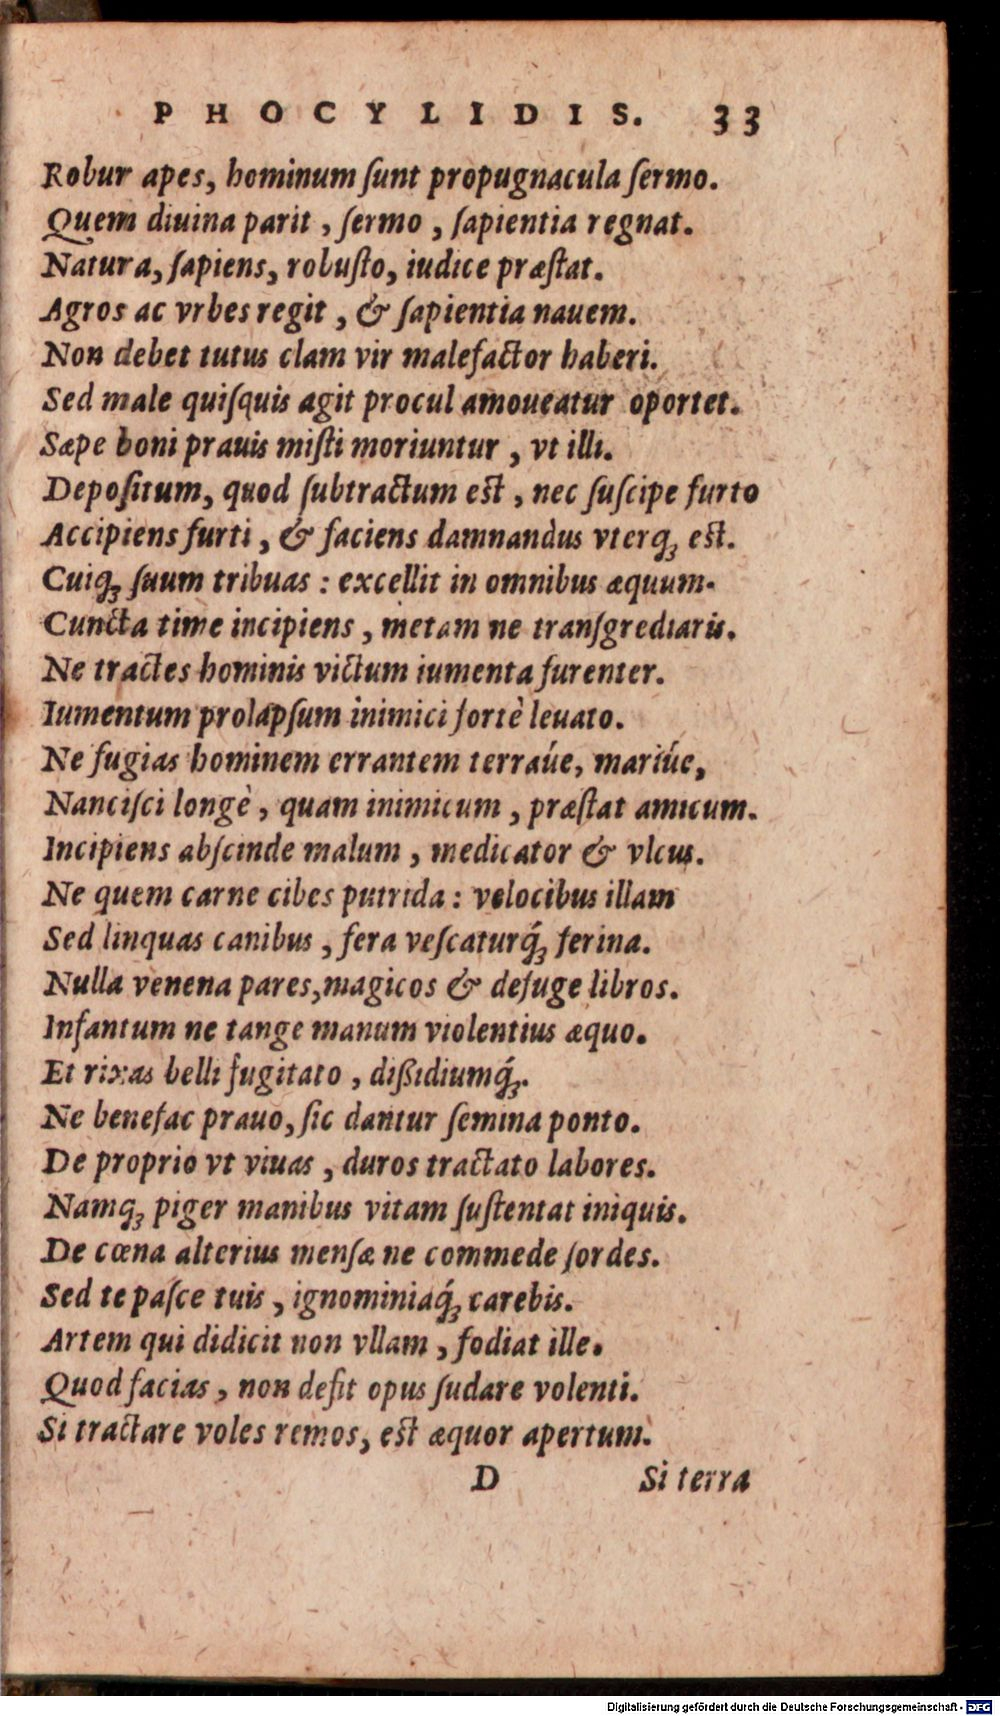 PHOCYLIDIS. 33
Robur apes, hominum ſunt propugnacula ſermo.
Quem diuina parit, ſermo, ſapientia regnat.
Natura, ſapiens, robuſto, iudice præſtat.
Agros ac vrbes regit, & ſapientia nauem.
Non debet tutus clam vir malefactor haberi.
Sed male quiſquis agit procul amoueatur oportet.
Sæpe boni prauis miſti moriuntur, vt illi.
Depoſitum, quod ſubtractum eſt, nec ſuſcipe furto
Accipiens furti, & faciens damnandus vterq; eſt.
Cuiq; ſuum tribuas: excellit in omnibus æquum.
Cuncta time incipiens, metam ne tranſgrediaris.
Ne tractes hominis victum iumenta furenter.
Iumentum prolapſum inimici fortè leuato.
Ne fugias hominem errantem terraúe, mariúe,
Nanciſci longè, quam inimicum, præſtat amicum.
Incipiens abſcinde malum, medicator & vlcus.
Ne quem carne cibes putrida: velocibus illam
Sed linquas canibus, fera veſcaturq́; ferina.
Nulla venena pares, magicos & defuge libros.
Infantum ne tange manum violentius æquo.
Et rixas belli fugitato, diſſidiumq́;.
Ne benefac prauo, ſic dantur ſemina ponto.
De proprio vt viuas, duros tractato labores.
Namq; piger manibus vitam ſuſtentat iniquis.
De cœna alterius menſæ ne commede ſordes.
Sed te paſce tuis, ignominiaq́; carebis.
Artem qui didicit non vllam, fodiat ille.
Quod facias, non deſit opus ſudare volenti.
Si tractare voles remos, eſt æquor apertum.
D Si terra
Digitalisierung gefördert durch die Deutsche Forschungsgemeinschaft - DFG